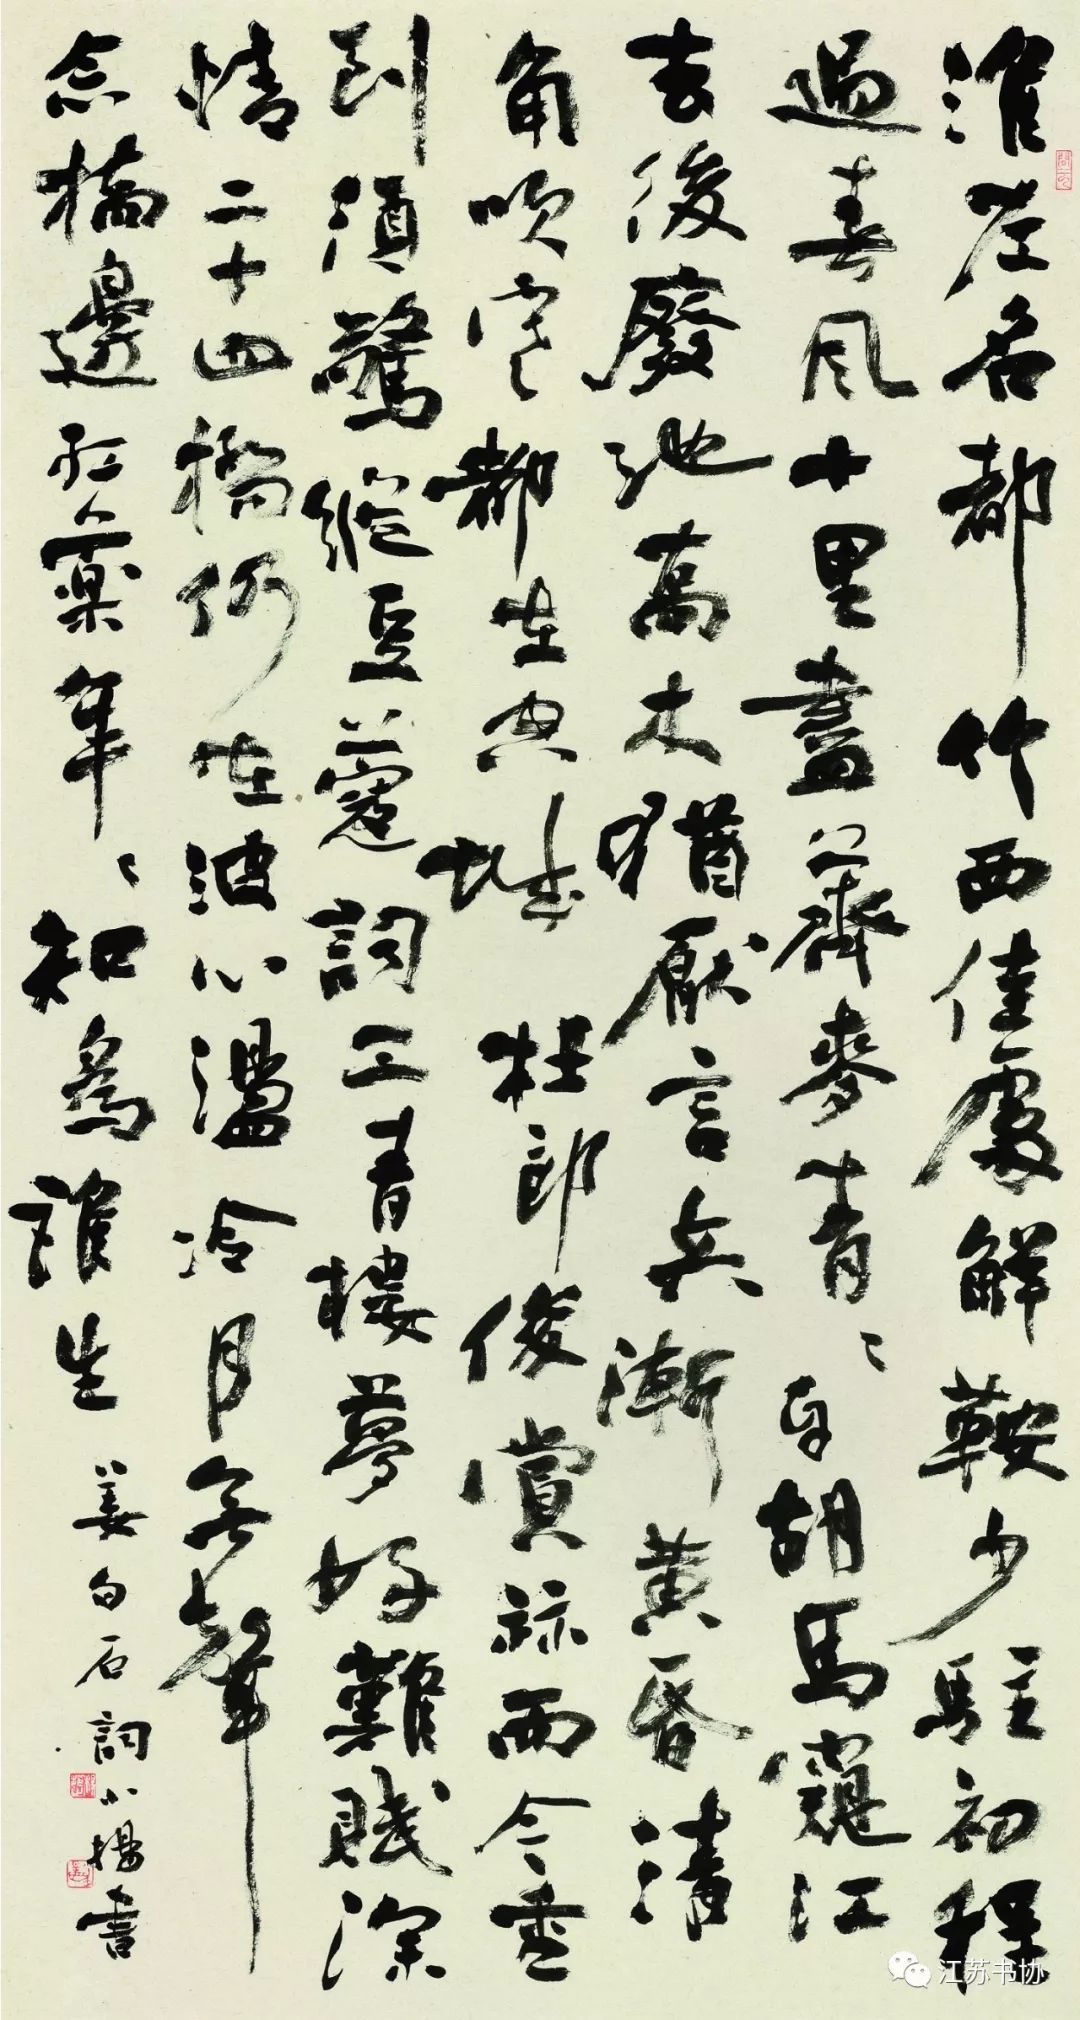 淮左名都竹西佳處解鞍少駐初程
過春風十里盡薺麥青〻自胡馬窺江
去後廢池喬木猶厭言兵漸黃昏清
角吹寒都在空城杜郎俊賞祘而今重
到須驚縱豆蔻詞工青樓夢好難賦深
情二十四橋仍在波心盪冷月無聲
念橋邊紅藥年〻知為誰生
姜白石詞小揚書
江苏书协